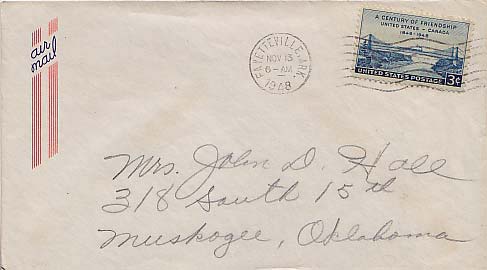 air
mail
FAYETTEVILLE, ARK.
NOV 13
6-AM
1948
A CENTURY OF FRIENDSHIP
UNITED STATES - CANADA
1848-1948
UNITED STATES POSTAGE 3¢
Mrs. John D. Hall
318 South 15th
Muskogee, Oklahoma